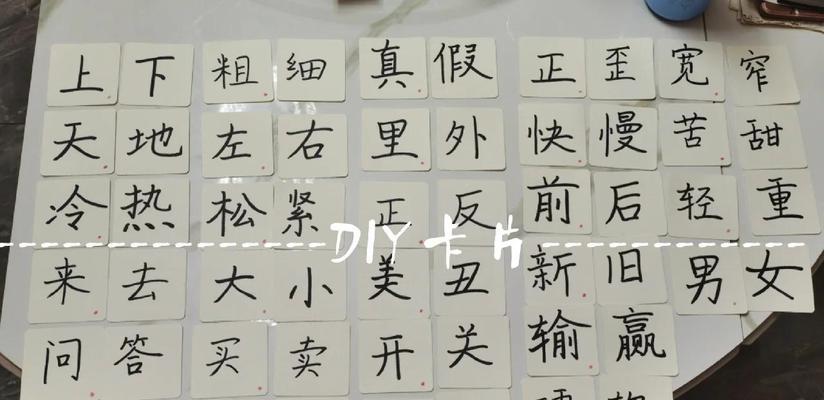 上 下 粗 细 真 假 正 歪 宽 窄
天 地 左 右 里 外 快 慢 苦 甜
冷 热 松 紧 正 反 前 后 轻 重
DIY卡片
来 去 大 小 美 丑 新 旧 男 女
问 答 买 卖 开 关 输 赢